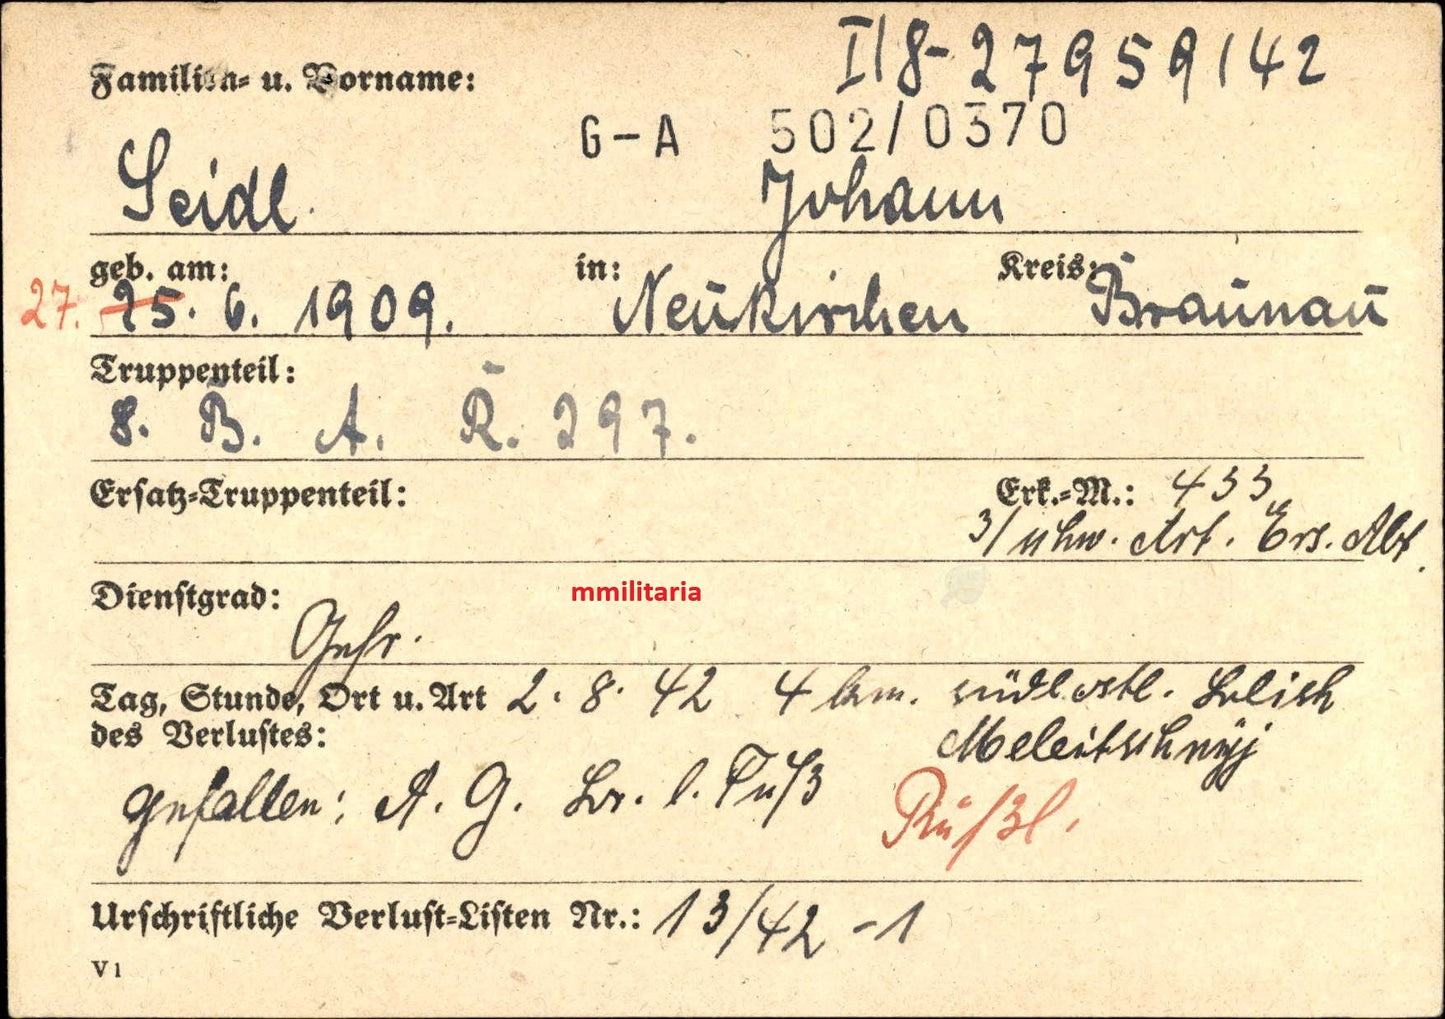 II8-27959/42
Familien- u. Vorname:
G-A 502/0370
Seidl Johann
geb. am: in: Kreis:
27. 25. 6. 1909. Neukirchen Braunau
Truppenteil:
8. B. A. R. 297.
Ersatz-Truppenteil: Erk.-M.: 433
3/ Art. Ers. Abt.
Dienstgrad:
Gefr.
Tag, Stunde, Ort u. Art 2. 8. 42 4 km. südl.
des Verlustes:
gefallen: A. G. l. Fuß
Urschriftliche Verlust-Listen Nr.: 13/42 -1
V 1
mmilitaria